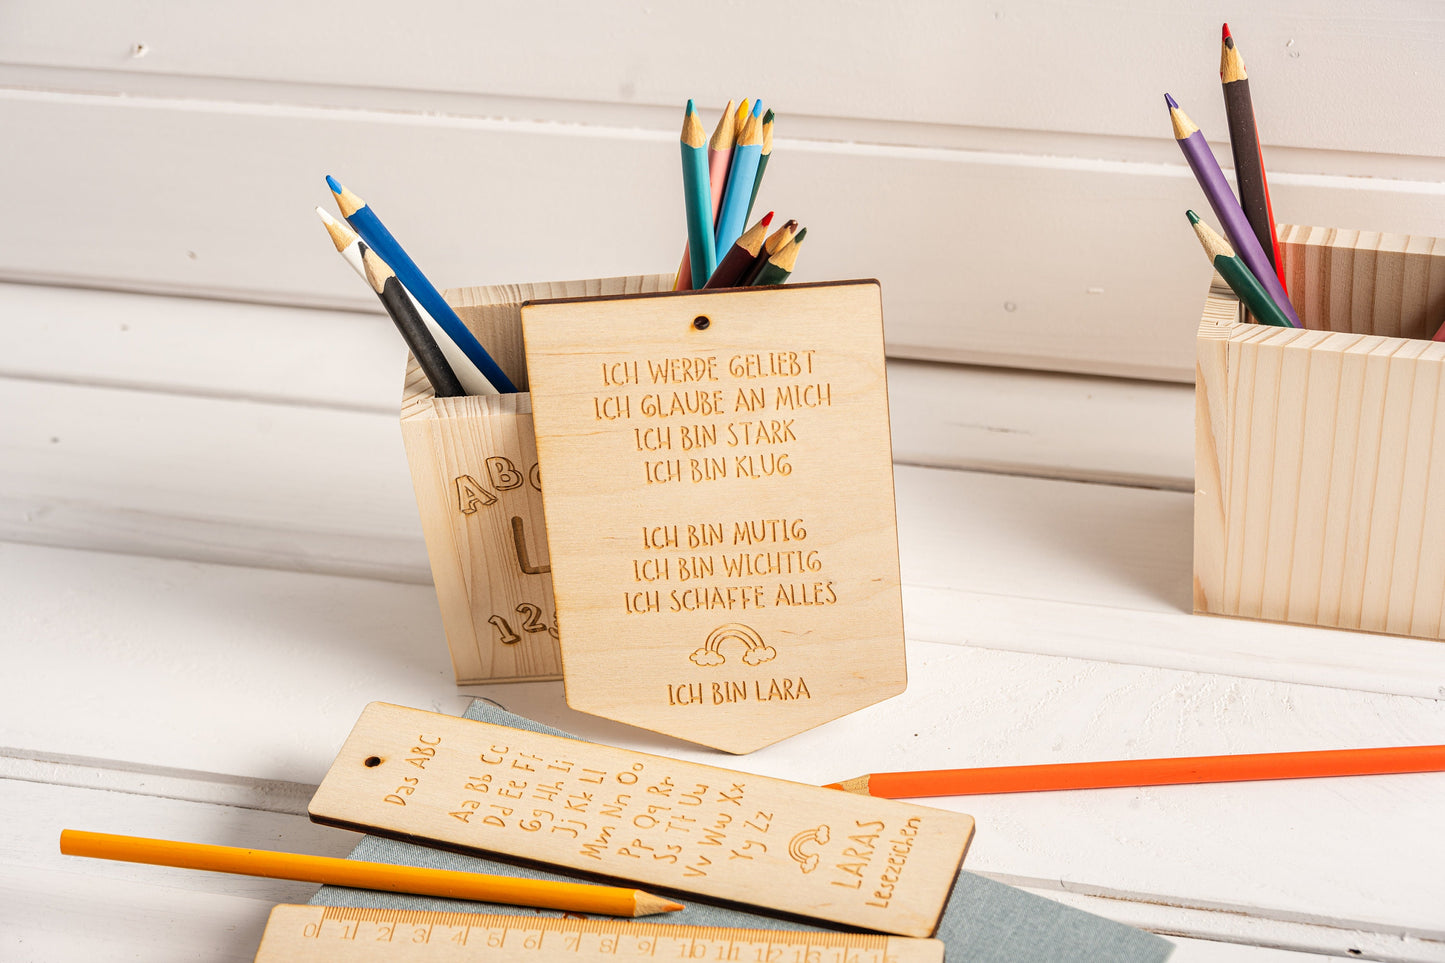 ICH WERDE GELIEBT
ICH GLAUBE AN MICH
ICH BIN STARK
ICH BIN KLUG
ICH BIN MUTIG
ICH BIN WICHTIG
ICH SCHAFFE ALLES
ICH BIN LARA
ABC
L
123
Das ABC
Aa Bb Cc
Dd Ee Ff
Gg Hh Ii
Jj Kk Ll
Mm Nn Oo
Pp Qq Rr
Ss Tt Uu
Vv Ww Xx
Yy Zz
LARAS
Lesezeichen
0 1 2 3 4 5 6 7 8 9 10 11 12 13 14 15